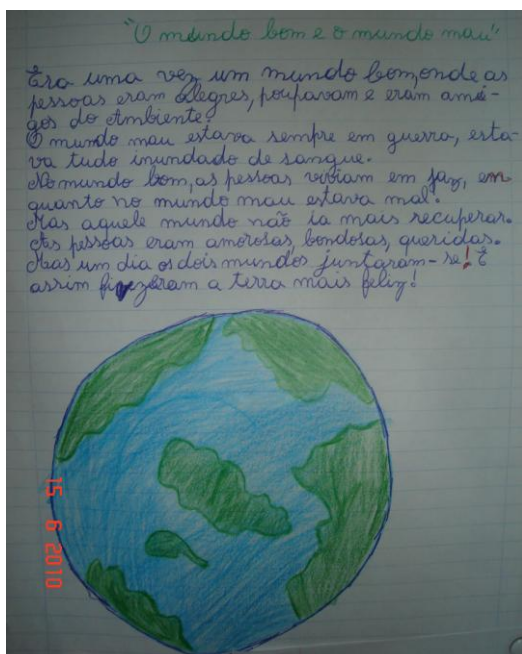 "O mundo bom e o mundo mau"
Era uma vez um mundo bom, onde as
pessoas eram alegres, poupavam e eram ami-
gos do Ambiente.
O mundo mau estava sempre em guerra, esta-
va tudo inundado de sangue.
No mundo bom, as pessoas viviam em paz, en
quanto no mundo mau estava mal.
Mas aquele mundo não ia mais recuperar.
As pessoas eram amorosas, bondosas, queridas.
Mas um dia os dois mundos juntaram-se! E
assim fizeram a terra mais feliz!
15 6 2010